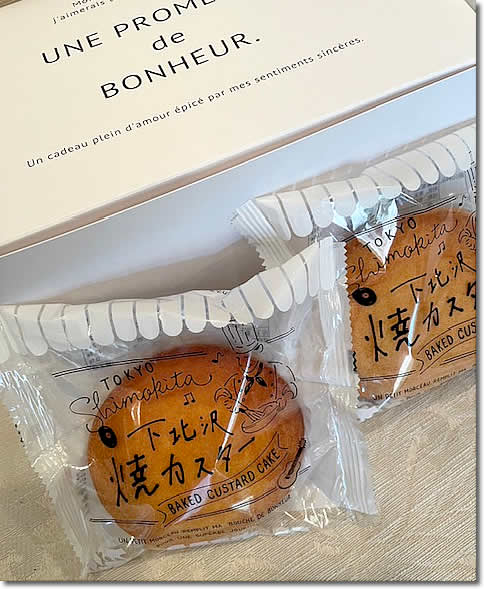 j'aimerais
UNE PROME
de
BONHEUR.
Un cadeau plein d'amour épicé par mes sentiments sincères.
TOKYO
Shimokita
下北沢
焼カスター
BAKED CUSTARD CAKE
UN PETIT MORCEAU REMPLIT MA BOUCHE DE BONHEUR
POUR UNE SUPERBE
TOKYO
Shimokita
下北沢
焼カスター
BAKED CUSTARD
UN PETIT MORCEAU REMPLIT MA